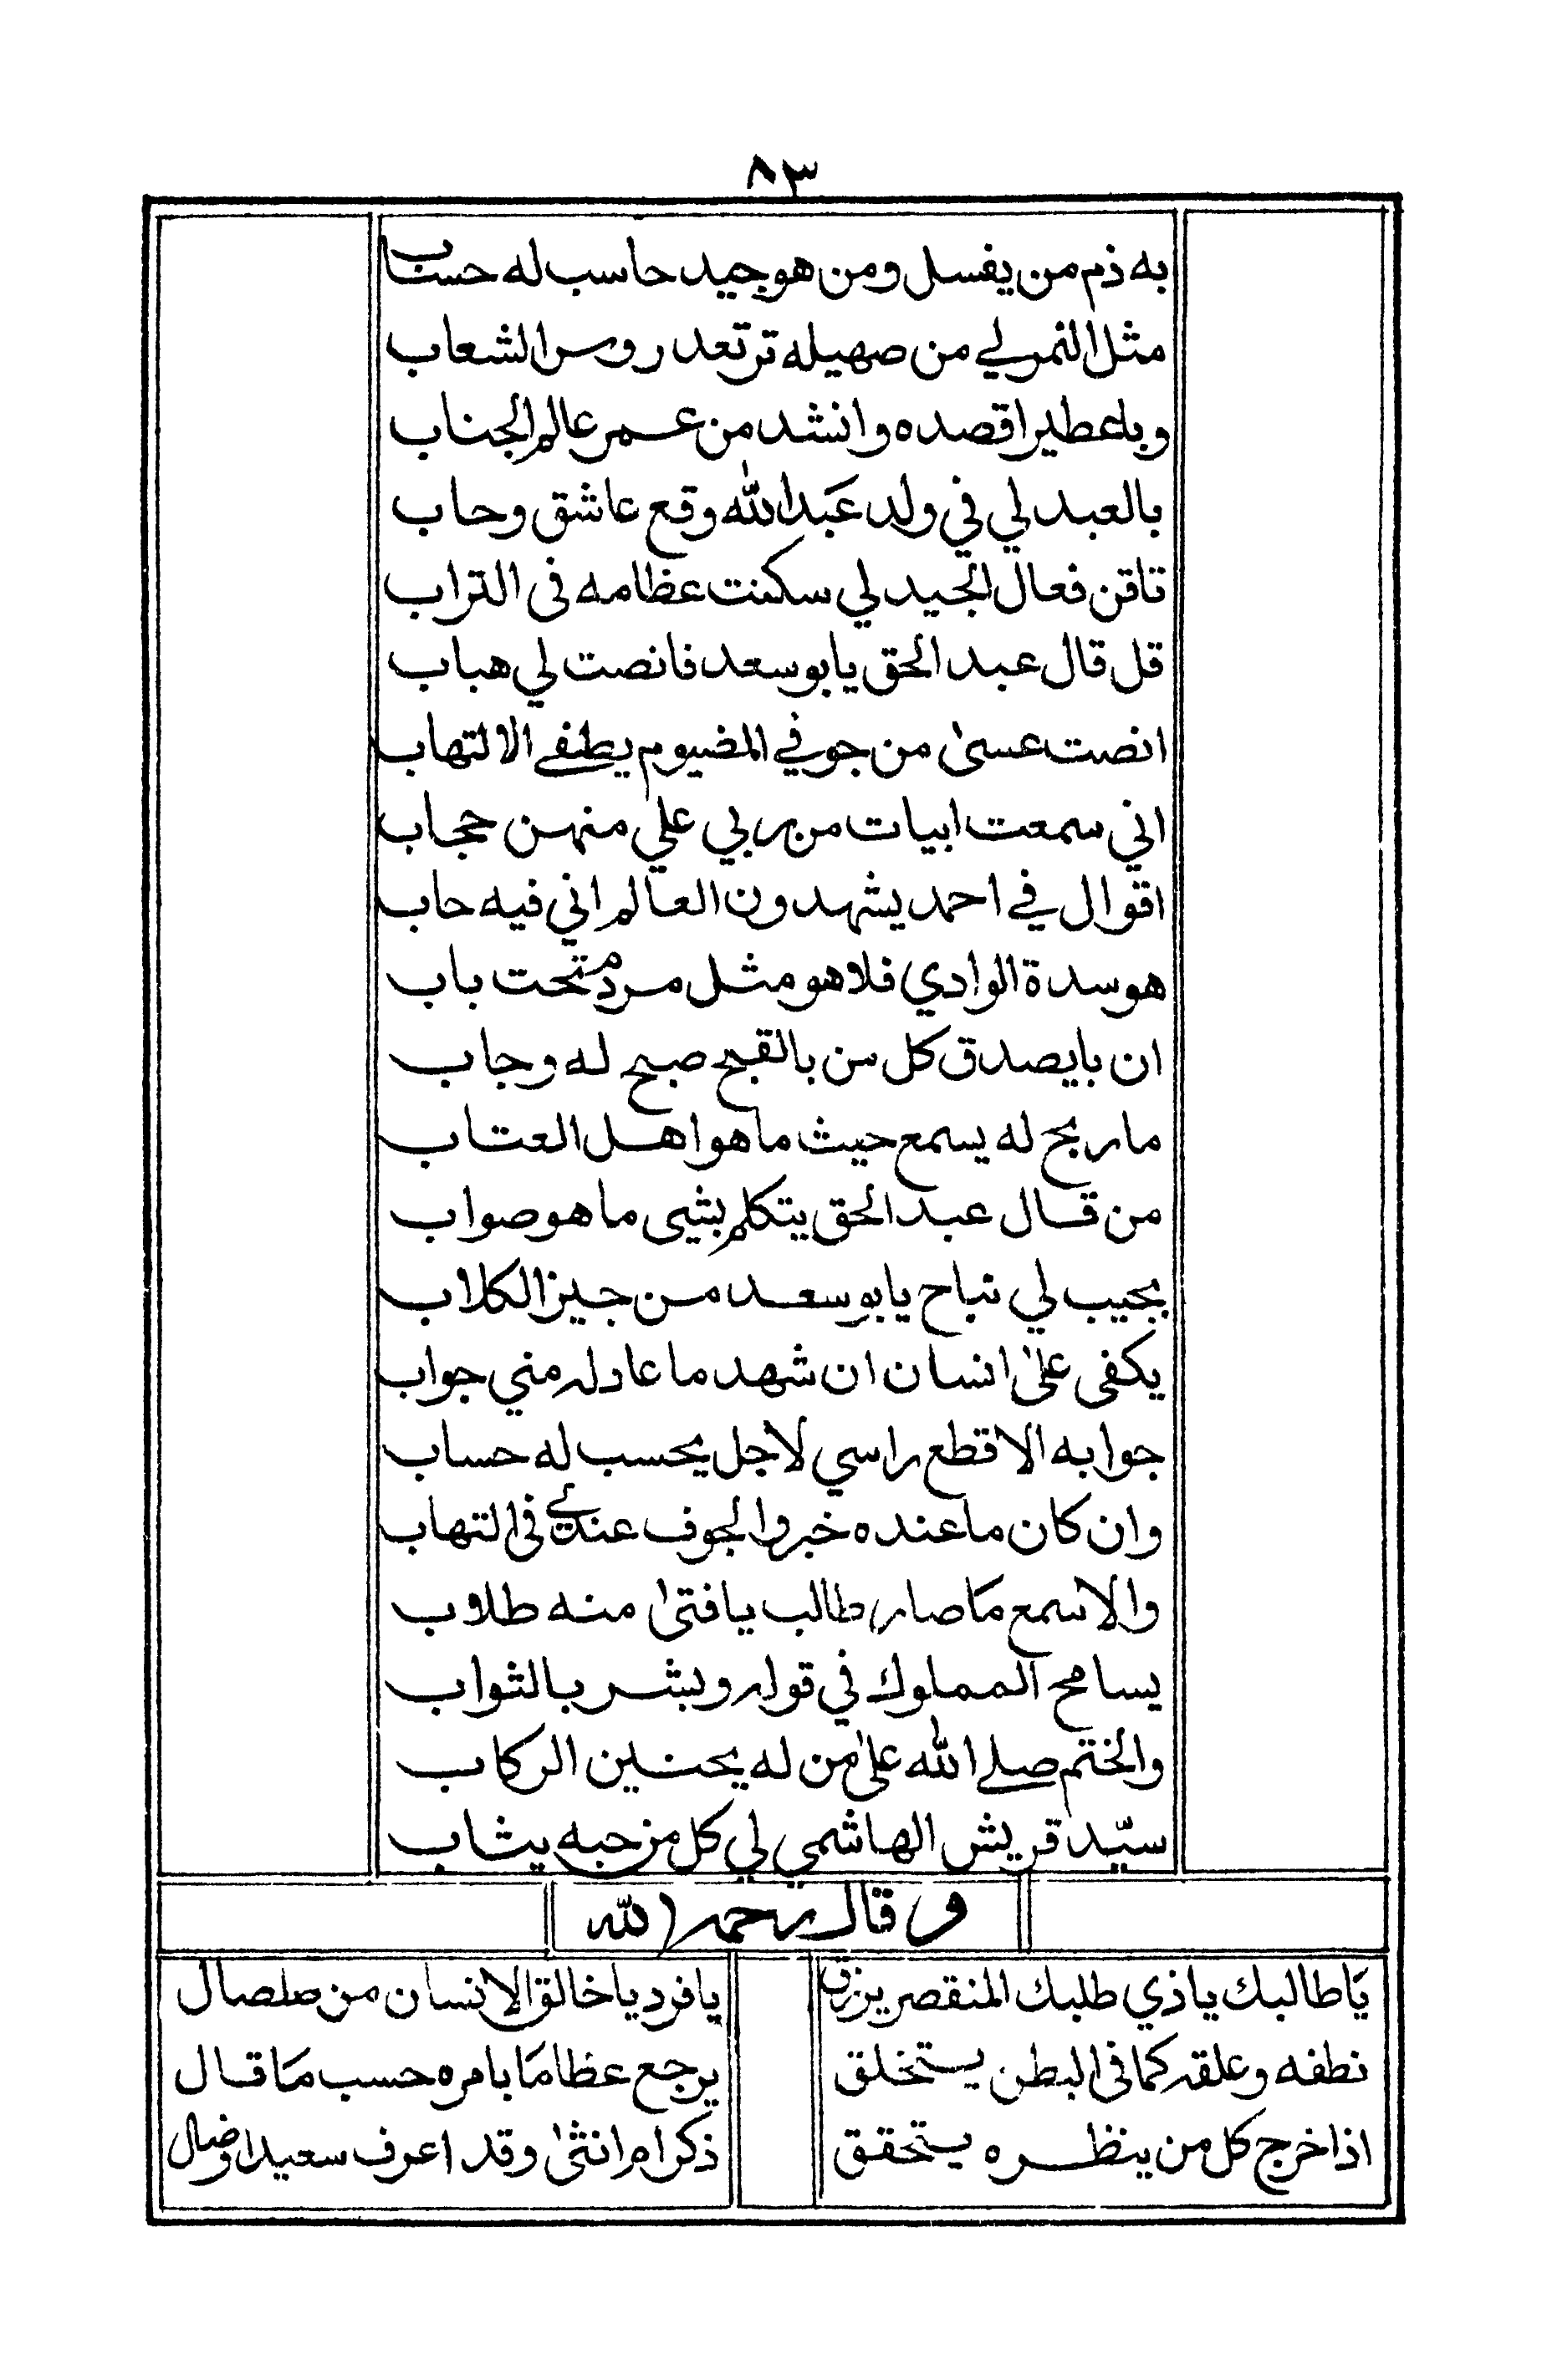 ٨٣
به ذم من يفسل ومن هو جيد حاسب له حساب
مثل النمر لي من صهيله ترتعد روس الشعاب
وباعطير اقصده وانشد من عمر عالم الجناب
بالعبد لي في ولد عبدالله وقع عاشق وحاب
تاقن فعال الجيد لي سكنت عظامه في التراب
قل قال عبد الحق يابوسعد فانصت لي هباب
انصت عسىٰ من جوفي المضيوم يطفي الالتهاب
اني سمعت ابيات من ربي علي منهن حجاب
اقوال في احمد يشهدون العالم اني فيه حاب
هو سدة الوادي فلا هو مثل مردم تحت باب
ان بايصدق كل من بالقبح صبح له وجاب
ماربح له يسمع حيث ما هو اهل العتاب
من قال عبد الحق يتكلم بشي ما هو صواب
بجيب لي نباح يابوسعد من جيز الكلاب
يكفى علىٰ انسان ان شهد ما عاد له مني جواب
جوابه الا قطع راسي لاجل يحسب له حساب
وان كان ما عنده خبر والجوف عندي في التهاب
والاسمع مَا صار طالب يا فتىٰ منه طلاب
يسامح المملوك في قوله ويبشر بالثواب
والختم صلى الله علىٰ من له يحنين الركاب
سيّد قريش الهاشمي لي كل من حبه يثاب
وقال رحمه الله
يَا طالبك يا ذي طلبك المنقصر يرزق يا فرد يا خالق الانسان من صلصال
نطفه وعلقه كما في البطن يستخلق يرجع عظامَا بامره حسب مَا قال
اذا خرج كل من ينظره يستحقق ذكر ام انثىٰ وقد اعرف سعيد اوضال